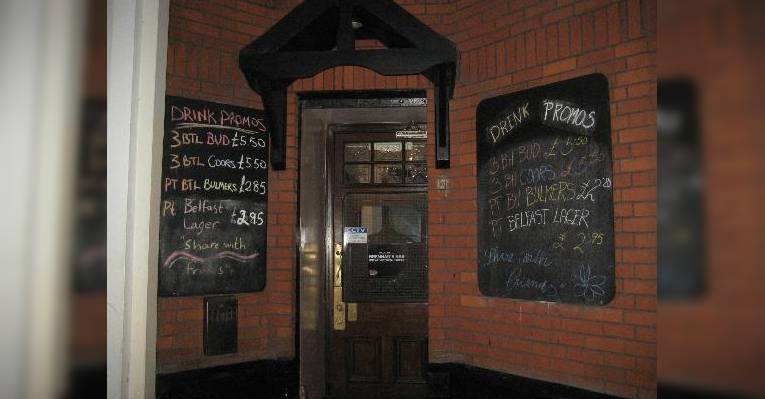 DRINK PROMOS
3 BTL BUD £5.50
3 BTL COORS £5.50
PT BTL BULMERS £2.85
Pt Belfast
Lager £2.95
"Share with
friends"
CCTV
BRENNAN'S BAR
DRINK PROMOS
3 Btl BUD £5.50
3 Btl COORS £5.50
PT Btl BULMERS
PT BELFAST LAGER
£2.95
Share with
Friends